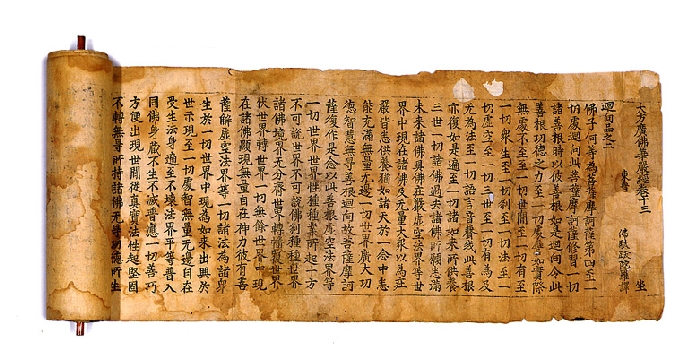 大方廣佛華嚴經卷十三
東晉 佛馱跋陀羅譯
迴向品之二
佛子何等為菩薩摩訶薩第四至一
切處迴向此菩薩摩訶薩修習一切
諸善根時以彼善根如是迴向令此
善根功德之力至一切處譬如實際
無處不至至一切世間至一切有至
一切眾生至一切刹至一切法至一
切虛空至一切三世至一切有為及
无為法至一切語言音聲願此善根
亦復如是遍至一切諸如來所供養
三世一切諸佛過去諸佛所願悉滿
未來諸佛具足莊嚴虛空法界等世
界中現在諸佛及无量大眾以為莊
嚴皆悉供養猶如諸天於一念中悉
能充滿無量无邊一切世界廣大功
德智慧無㝵善根迴向故菩薩摩訶
薩復作是念以此善根虛空法界等
一切世界世界性種種業所起一方
不可說世界不可說佛刹種種世界
諸佛境界无分齊世界轉世界
伏世界轉世界一切無餘世界中現
在諸佛顯現無量自在神力彼有菩
薩解虛空法界等一切諸法為諸眾
生者一切世界中現為如來出興於
世示現至一切處智無量无邊自在
受生法身遍至不壞法界平等普入
同佛身處不生不滅普應一切善巧
方便出現世間從真實法性起堅固
不轉無㝵所持諸佛无量功德所生